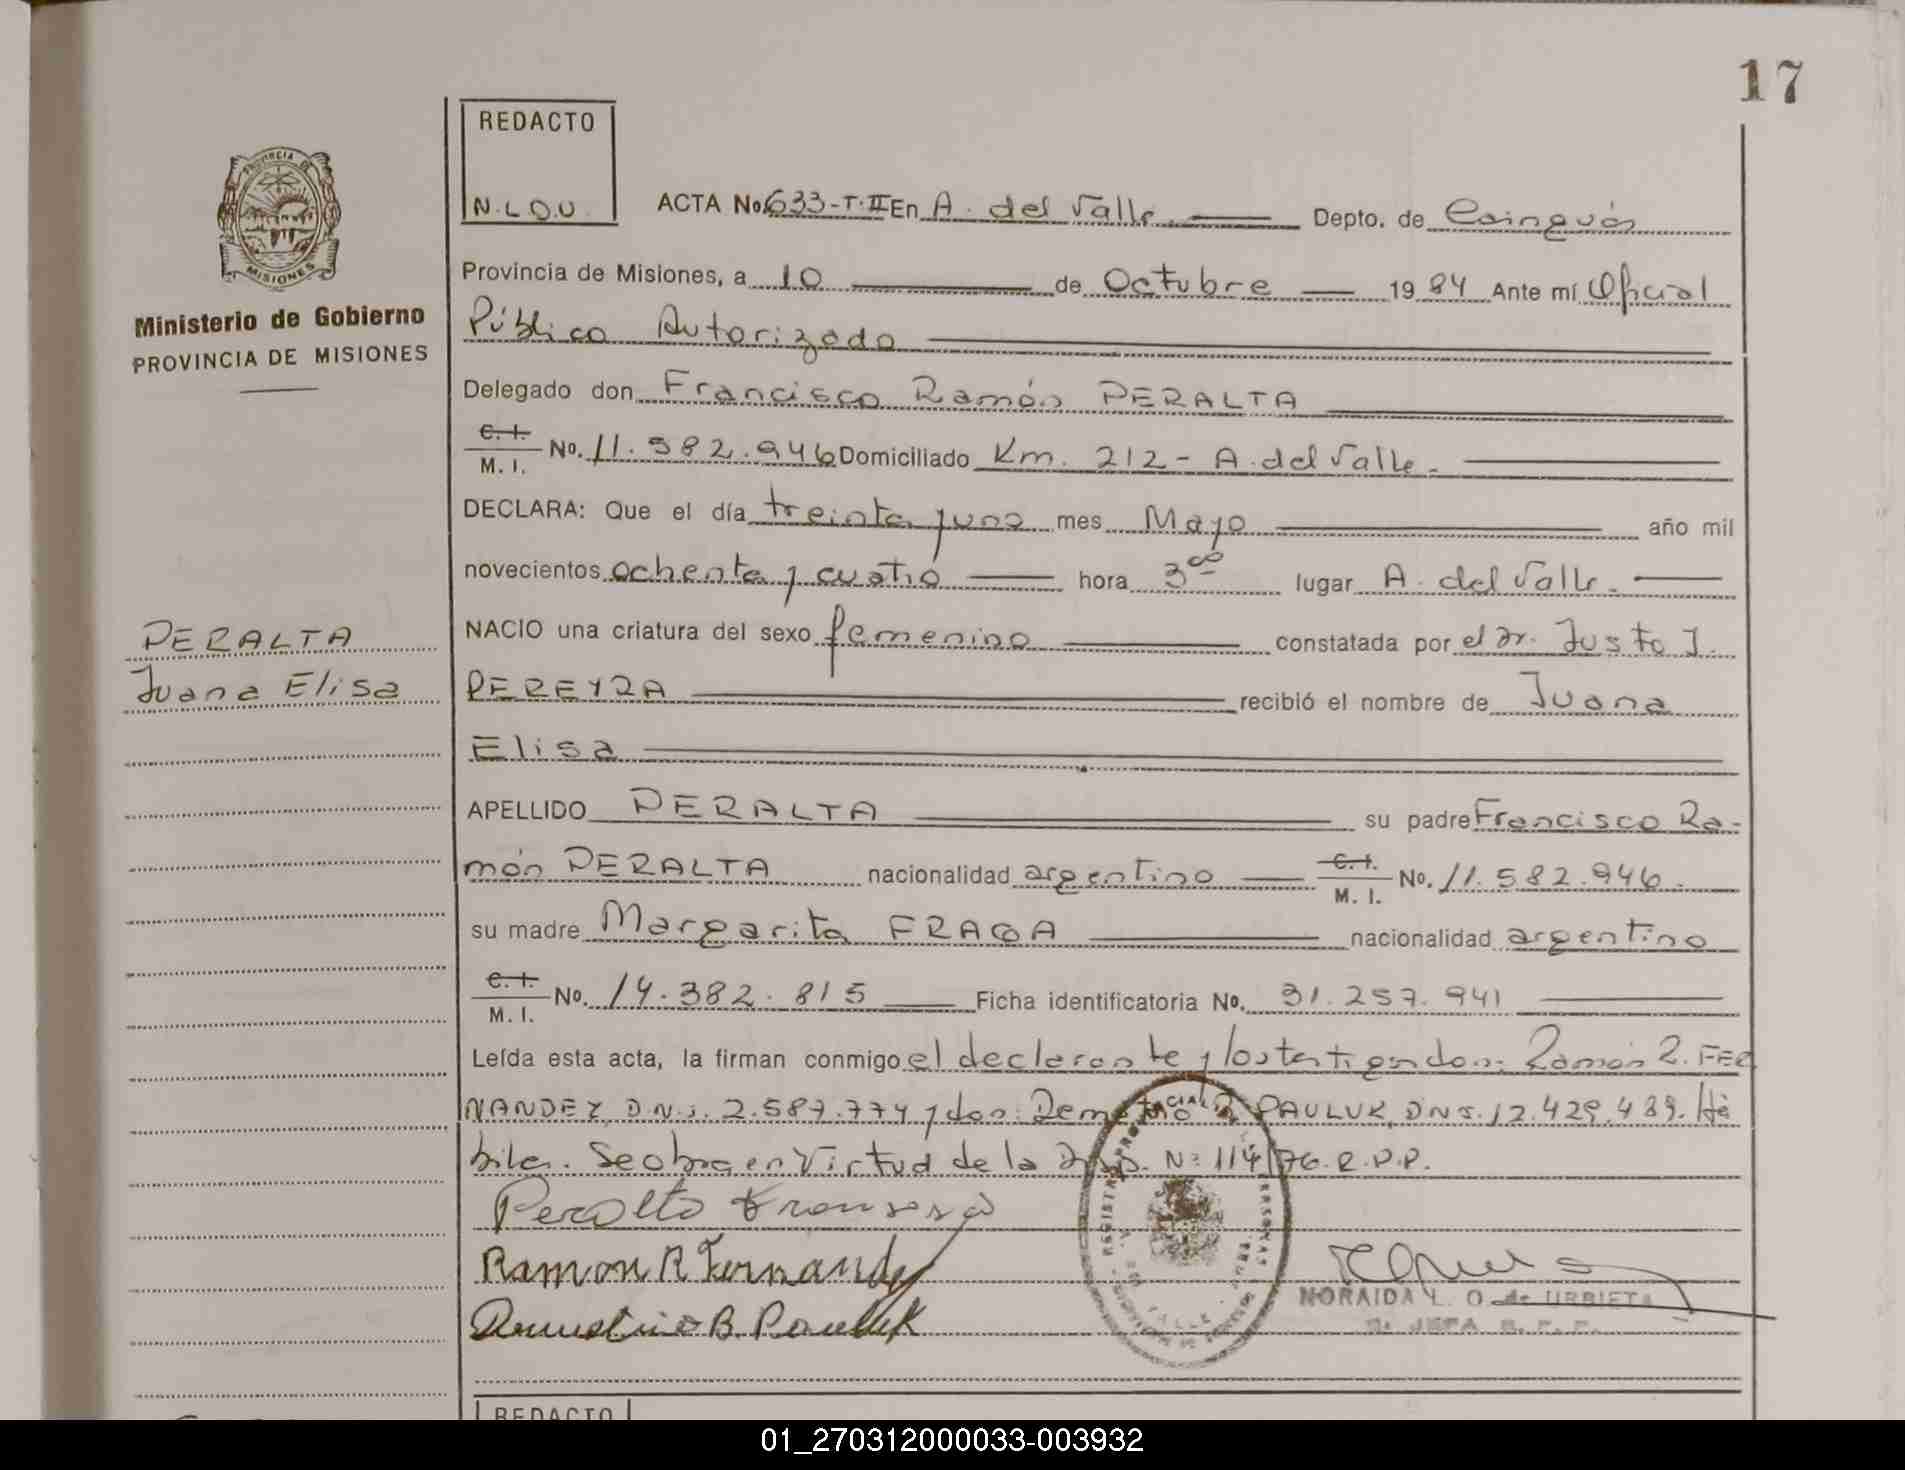 17
REDACTO
N.L.O.U.
ACTA No. 633-T.II En A. del Valle. Depto. de Cainguás
Provincia de Misiones, a 10 de Octubre 1984 Ante mí Oficial
Público Autorizado
PROVINCIA DE MISIONES
Ministerio de Gobierno
PROVINCIA DE MISIONES
Delegado don Francisco Ramón PERALTA
C. I. M. I. No. 11.582.946 Domiciliado Km. 212 - A. del Valle.
DECLARA: Que el día treinta y uno mes Mayo año mil
novecientos ochenta y cuatro hora 3ºº lugar A. del Valle.
PERALTA
Juana Elisa
NACIO una criatura del sexo femenino constatada por el Dr. Justo J.
PEREYRA recibió el nombre de Juana
Elisa
APELLIDO PERALTA su padre Francisco Ra-
món PERALTA nacionalidad argentino C. I. M. I. No. 11.582.946.
su madre Margarita FRAGA nacionalidad argentino
C. I. M. I. No. 14.382.815 Ficha identificatoria No. 31.257.941
Leída esta acta, la firman conmigo el declarante y los testigos don: Ramón R. FER
NANDEZ, D.N.I. 2.587.774 y don: Demetrio B. PAULUK, DNI. 12.429.489. Há
biles. Se obra en Virtud de la Disp. Nº 114/76.R.P.P.
Peralta Fransisco
Ramon R Fernandez
Demetrio B. Pauluk
NORAIDA L. O. de URBIETA
JEFA R. P. P.
REDACTO
01_270312000033-003932